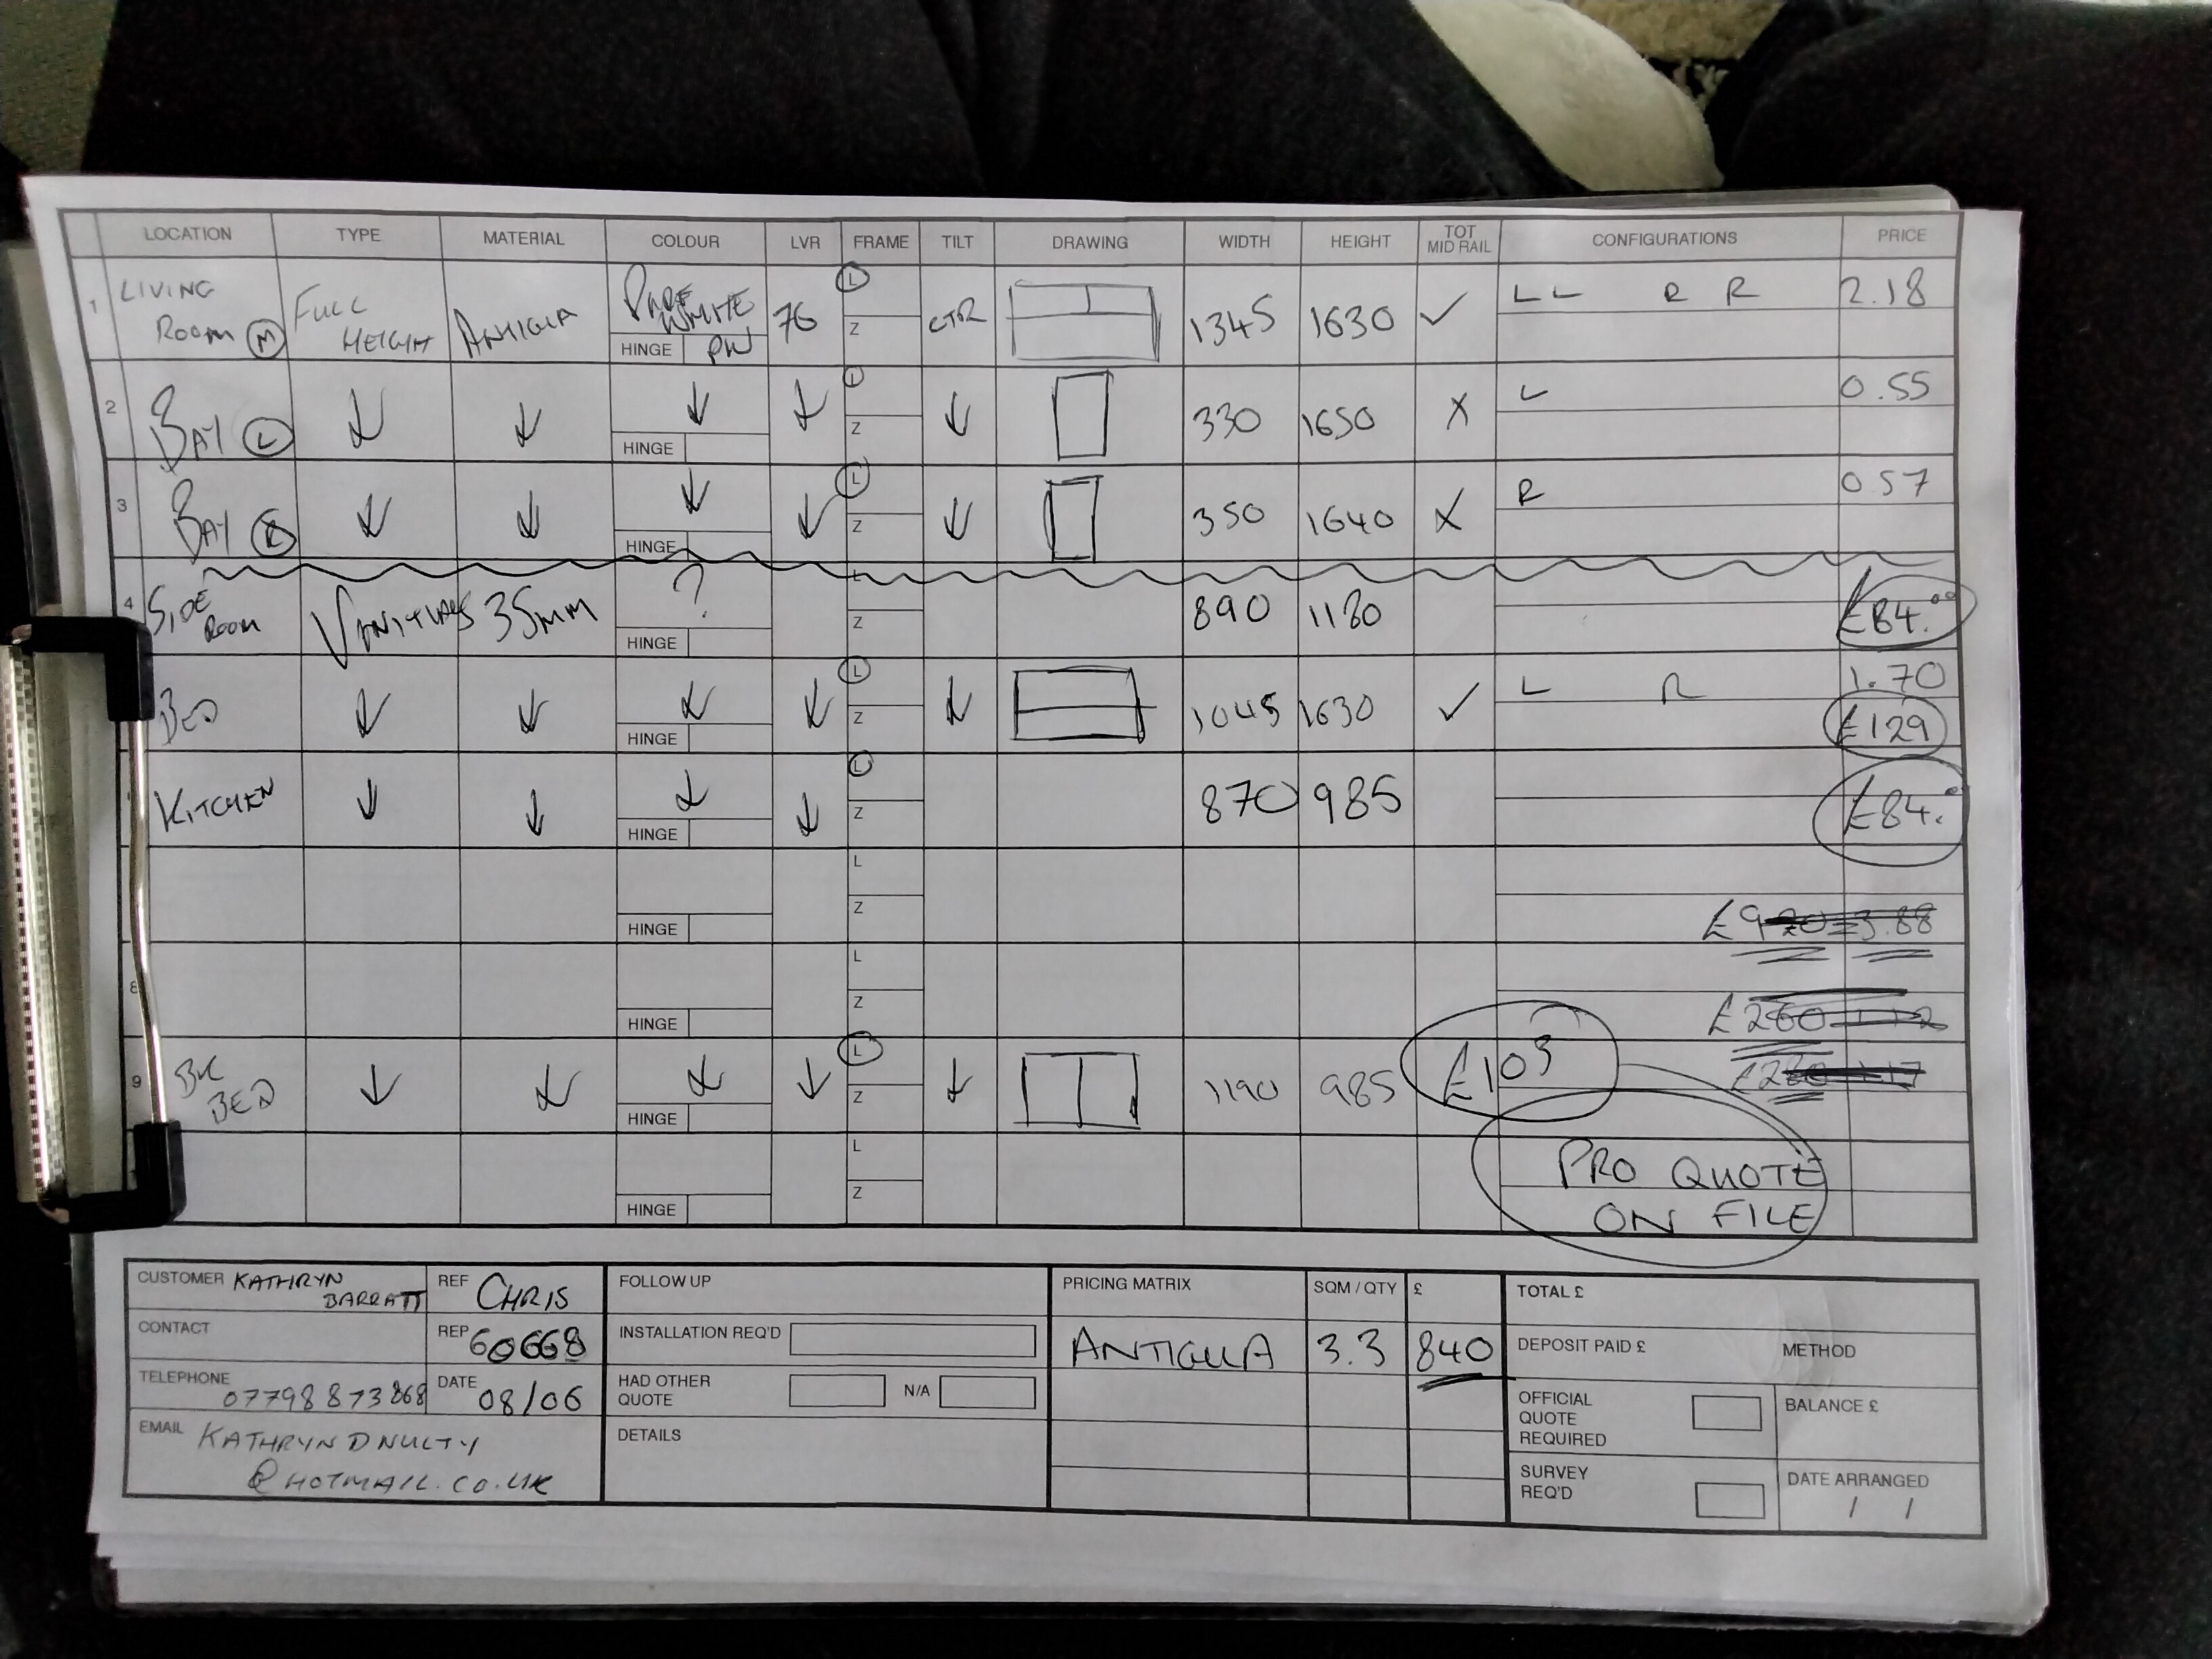 LOCATION TYPE MATERIAL COLOUR LVR FRAME TILT DRAWING WIDTH HEIGHT TOT MID RAIL CONFIGURATIONS PRICE
1 LIVING ROOM M FULL HEIGHT ANTIGUA PURE WHITE HINGE PW 76 L Z CTR 1345 1630 ✓ L L R R 2.18
2 BAY L ↓ ↓ ↓ HINGE ↓ L Z ↓ 330 1650 X L 0.55
3 BAY R ↓ ↓ ↓ HINGE ↓ L Z ↓ 350 1640 X R 0.57
4 SIDE ROOM 35MM ? HINGE L Z 890 1180 £84.00
BED ↓ ↓ ↓ HINGE ↓ L Z ↓ 1045 1630 ✓ L R 1.70
£129
KITCHEN ↓ ↓ ↓ HINGE ↓ L Z 870 985 £84.
HINGE L Z
£920 = 3.88
8 HINGE L Z
£260
9 BK BED ↓ ↓ ↓ HINGE ↓ L Z ↓ 1190 985 £103
HINGE L Z
PRO QUOTE
ON FILE
CUSTOMER KATHRYN BARRATT
REF CHRIS
CONTACT
REP 60668
TELEPHONE 07798873868
DATE 08/06
EMAIL KATHRYN D NULTY
@HOTMAIL.CO.UK
FOLLOW UP
INSTALLATION REQ'D
HAD OTHER QUOTE N/A
DETAILS
PRICING MATRIX SQM / QTY £
ANTIGUA 3.3 840
TOTAL £
DEPOSIT PAID £ METHOD
OFFICIAL QUOTE REQUIRED
BALANCE £
SURVEY REQ'D
DATE ARRANGED
/ /